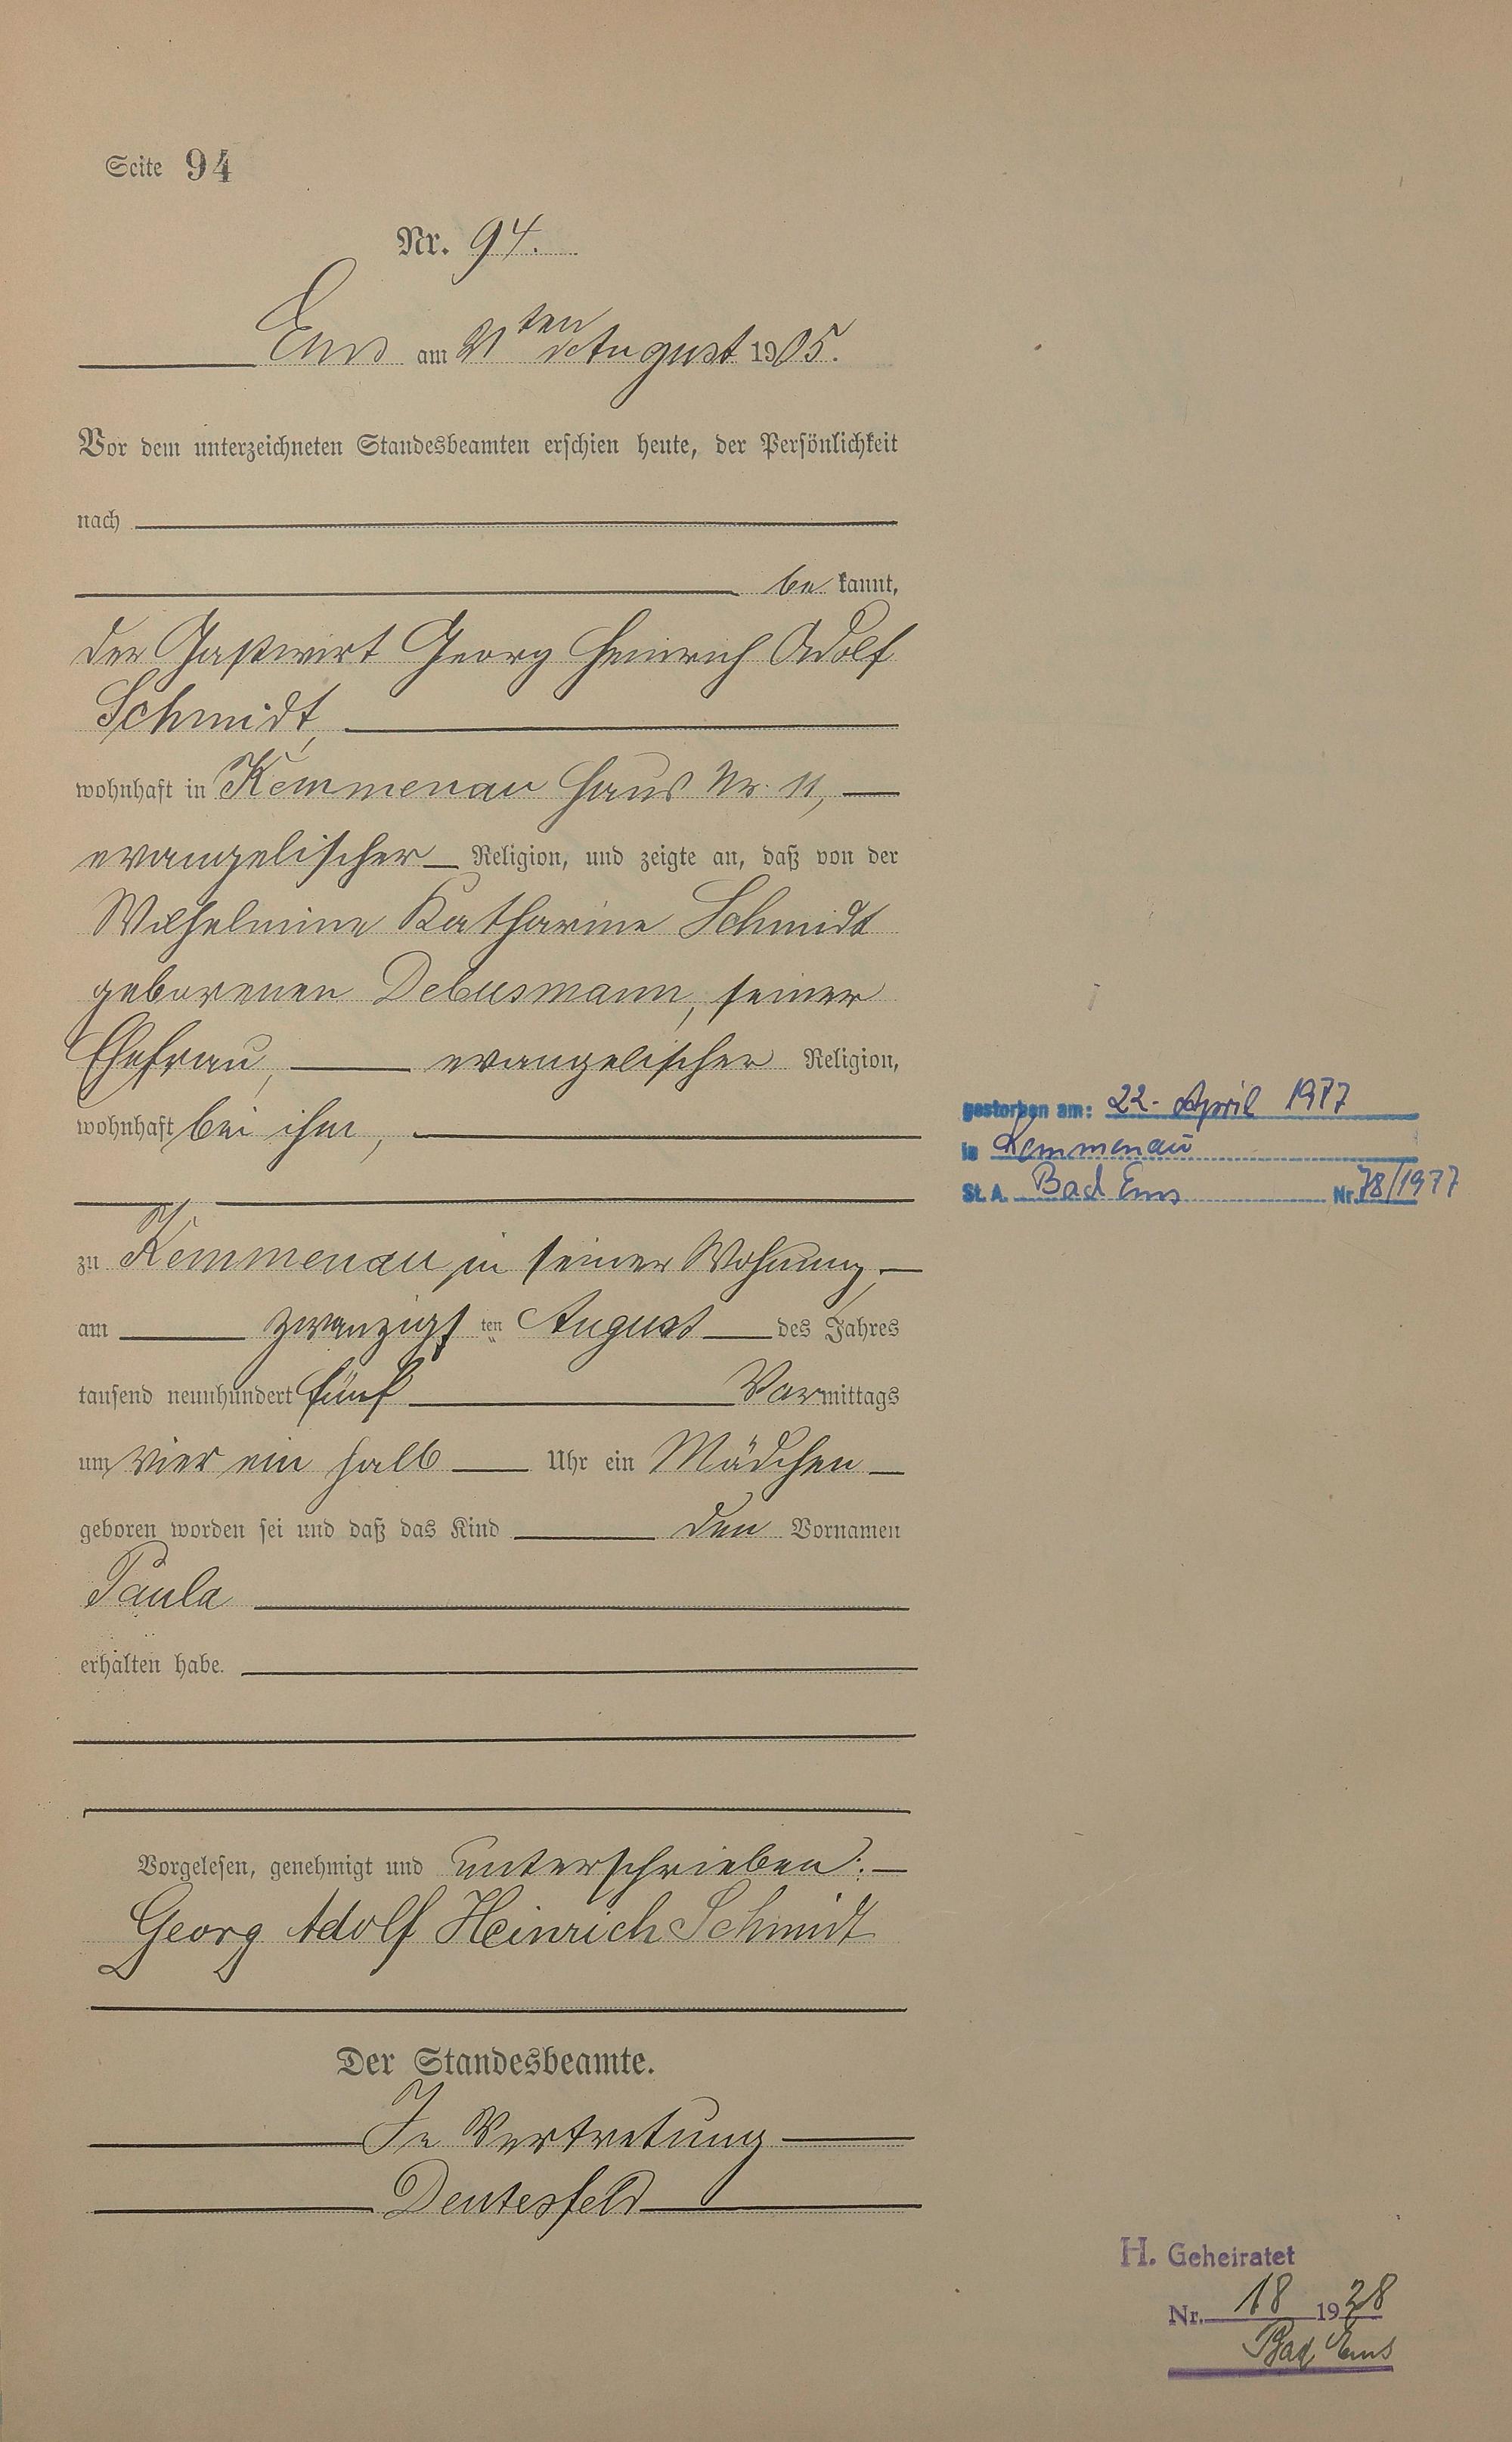 Seite 94
Nr. 94.
Ems am 21ten August 1905.
Vor dem unterzeichneten Standesbeamten erschien heute, der Persönlichkeit
nach
be kannt,
der Gastwirt Georg Heinrich Adolf
Schmidt,
wohnhaft in Kemmenau Haus Nr. 11,
evangelischer Religion, und zeigte an, daß von der
Wilhelmine Katharine Schmidt
geborenen Debusmann, seiner
Ehefrau, evangelischer Religion,
wohnhaft bei ihm,
zu Kemmenau in seiner Wohnung,
am zwanzigsten August des Jahres
tausend neunhundert fünf Vormittags
um vier ein halb Uhr ein Mädchen
geboren worden sei und daß das Kind den Vornamen
Paula
erhalten habe.
Vorgelesen, genehmigt und unterschrieben:
Georg Adolf Heinrich Schmidt
Der Standesbeamte.
In Vertretung
gestorben am: 22. April 1977
in Kemmenau
St. A. Bad Ems Nr. 78/1977
H. Geheiratet
Nr. 18 1928
Bad Ems